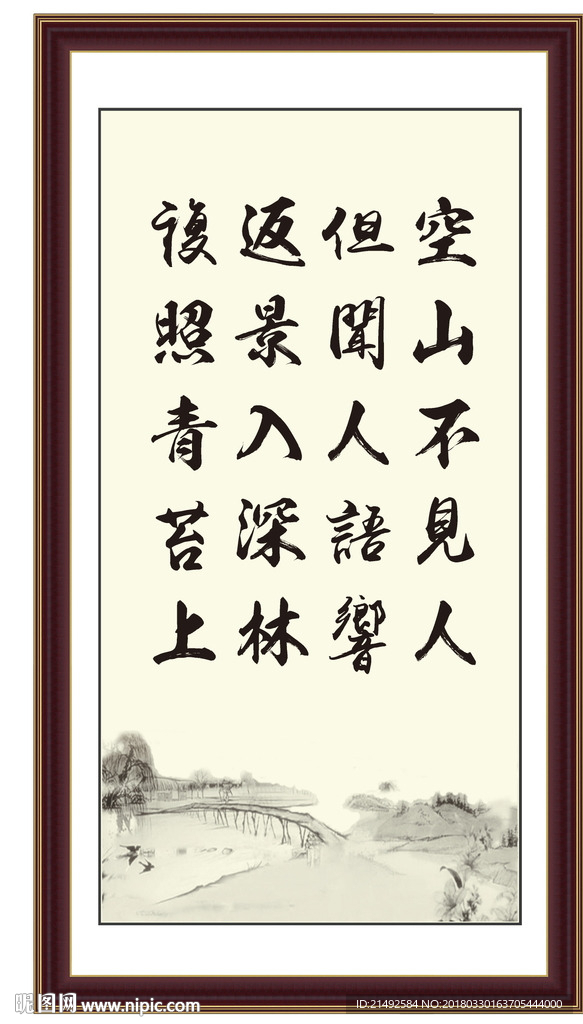 空山不見人
但聞人語響
返景入深林
複照青苔上
昵图网 www.nipic.com
ID:21492584 NO:20180330163705444000